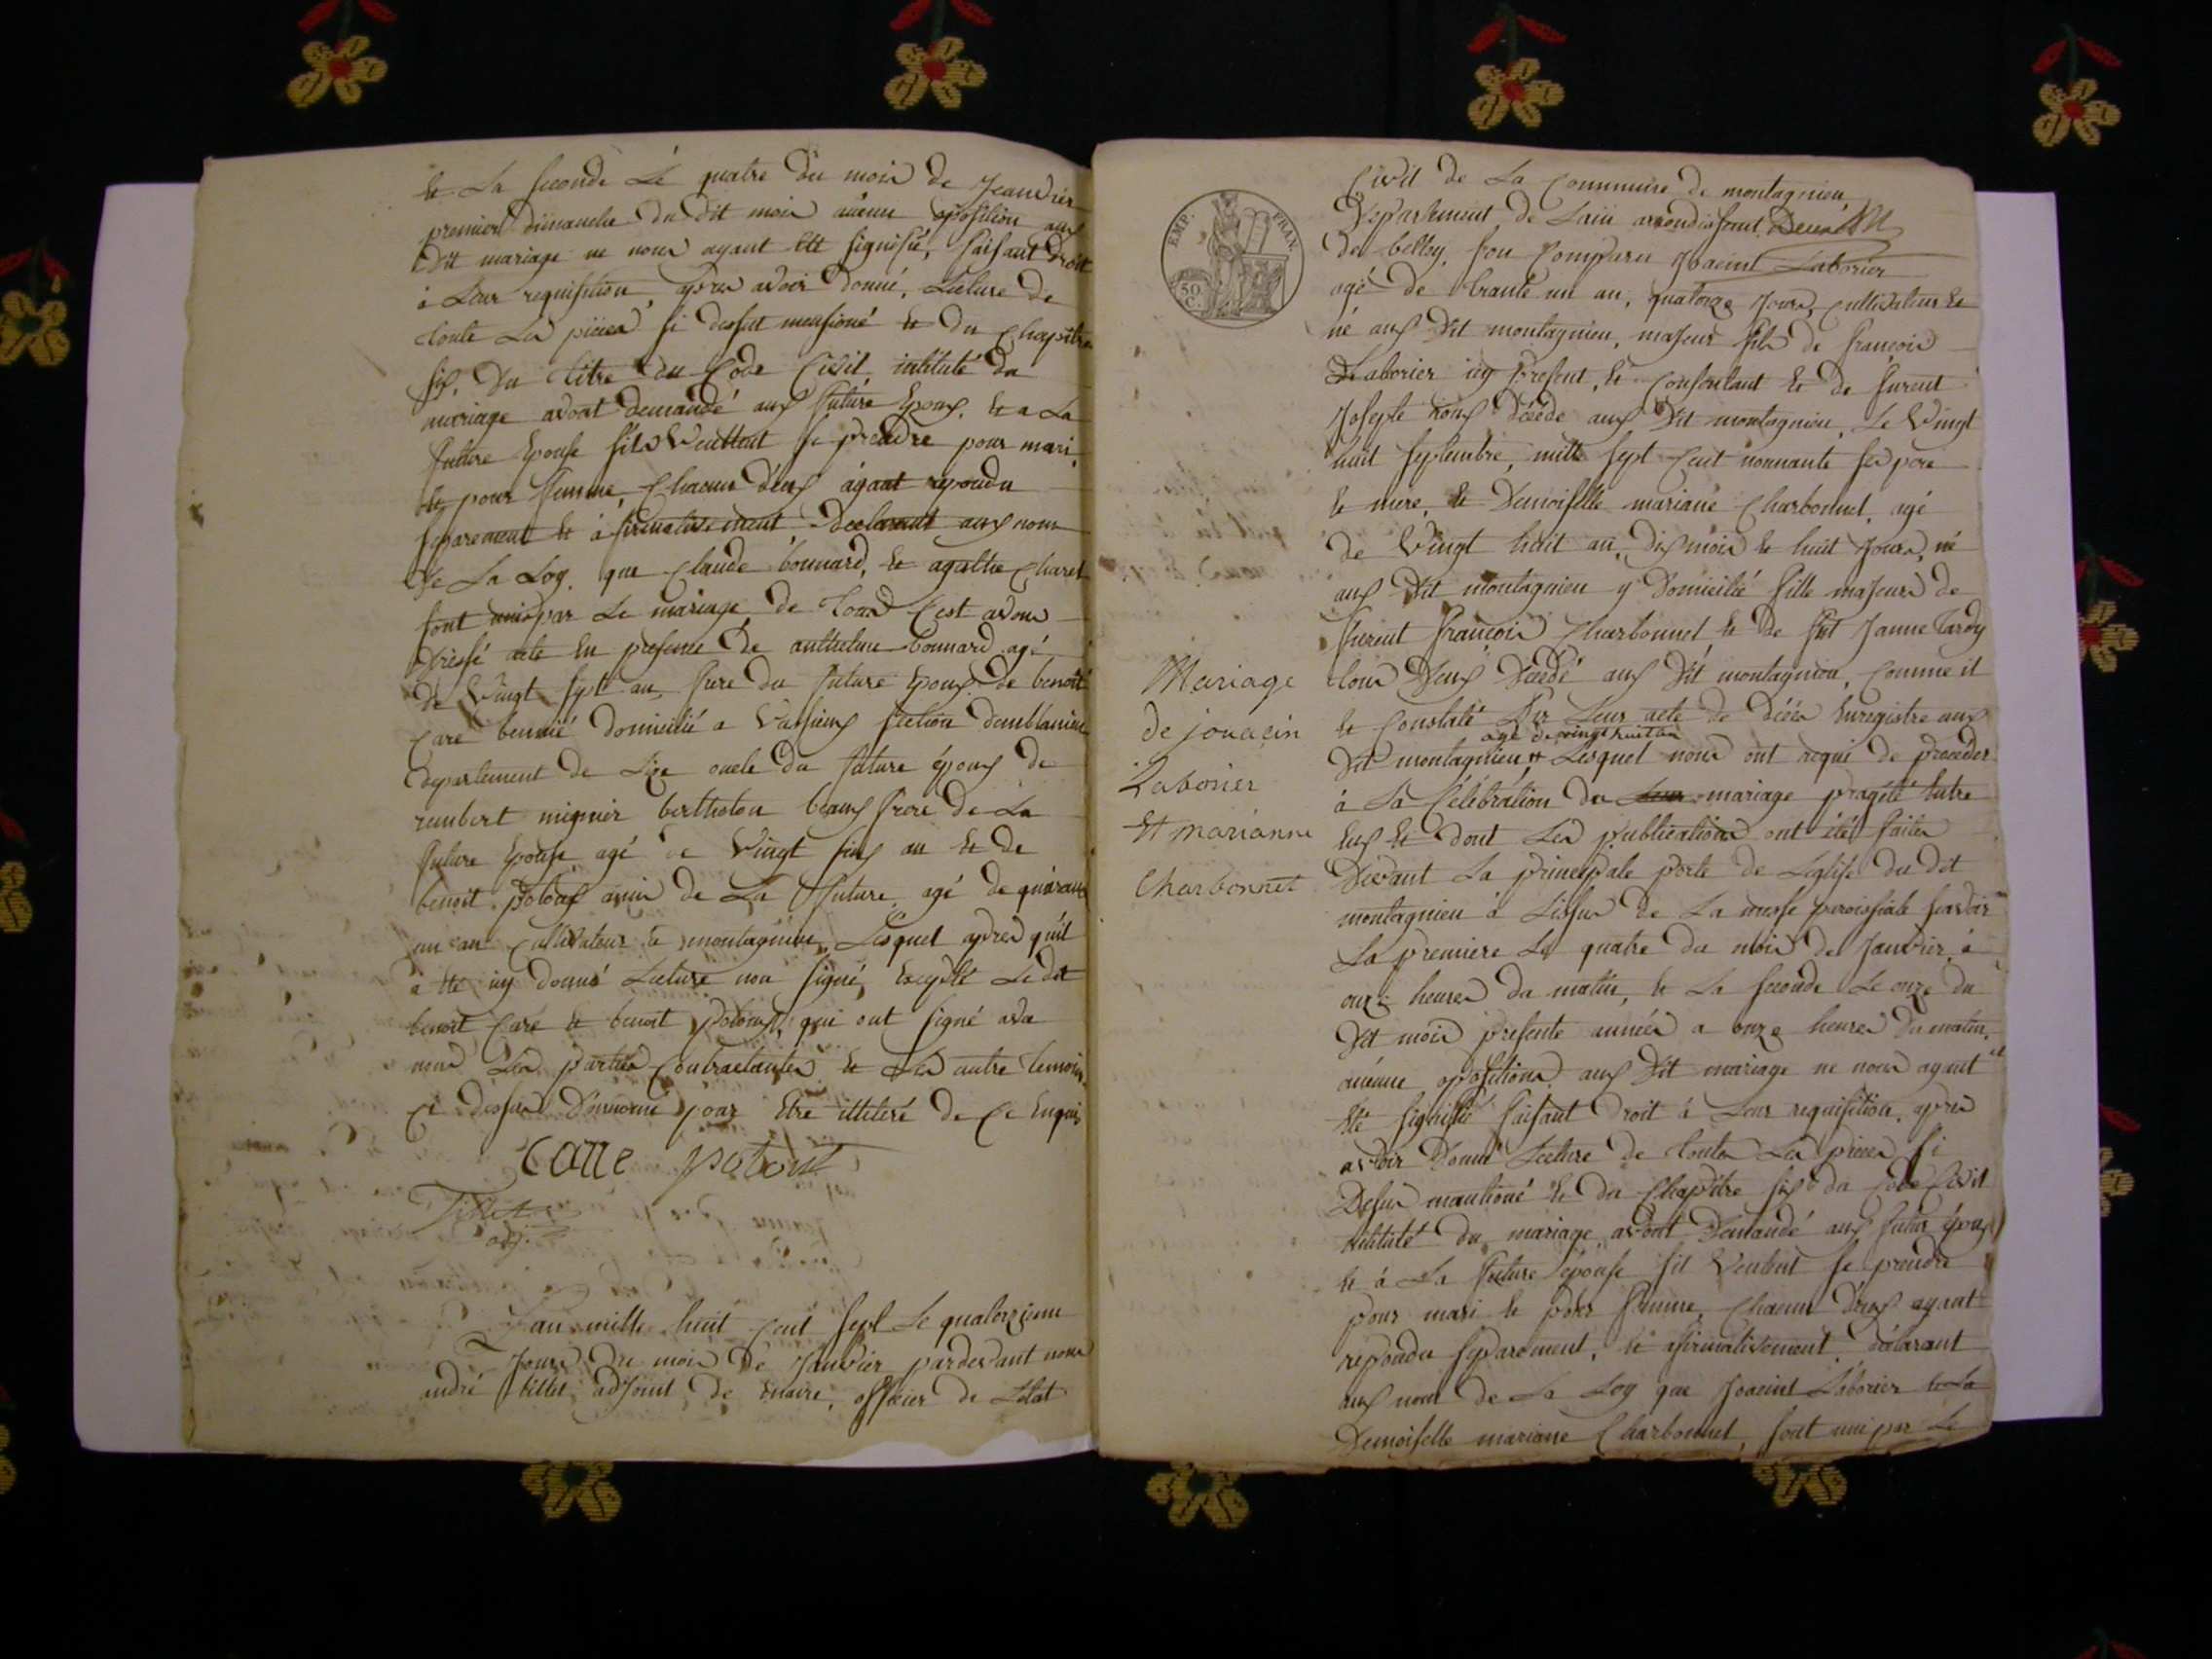 Et La seconde Le quatre du mois de Jeanvier
premier dimanche du dit mois aucune oposition aux
Dit mariage ne nous ayant été signifié, faisant Droit
à Leur requisition, apres avoir donné, Lecture de
toute La pièces si dessut mensioné et du Chapitre
six, Du titre du Code Civil intitulé du
mariage avont demandé aux future Epoux, et a La
future Epouse s'ils veullent se prendre pour mari,
et pour femme, Chacun d'eux ayant repondu
separement et afirmativement declarant aux nom
de La Loy que Claude bonnard, et agathe Charet
sont unis par Le mariage de tous Cest avons
dressé acte En presence de antthelme bonnard agé
de Vingt sept an, frere du future Epoux de benoit
Care domicilié a section
departement de oncle du future époux de
mignier berthelon beaux frere de La
future Epouse agé de Vingt six an et de
benoit potoux amis de La future agé de quarante
un an Cultivateur a montagnieu Lesquel apres quil
a été donné Lecture non signé, Excepté Le dit
benoit Care et benoit potoux, qui ont signé avec
nous Les parties Contractantes et Les autre temoins
Ci dessus pour Etre illiteré de Ce Enquis
Carre potoux
Tillet
adj.
Lan mille huit Cent sept Le quatorzieme
Jours du mois de Janvier pardevant nous
andré tillet adjoint de maire, officier de Létat
EMP. FRAN.
50
C.
Civil de La Commune de montagnieu
Département de Lain arrondissant
de belley, son Comparu Joacint Laborier
agé de trante un an, quatorze Jours, Cultivateur Et
né aux Dit montagnieu, majeur fils de françois
Laborier icy present, et Consontant et de furent
Josephe Roux Décéde aux Dit montagnieu, Le Vingt
huit septembre, mille sept Cent nonnante ses pere
Et mere, et Demoiselle mariane Charbonnet, agé
de Vingt huit an, Dix mois et huit Jours, né
aux Dit montagnieu y Domicilié fille majeure de
furent françois Charbonnet, et de fut Janne Tardy
tous Deux Décédé aux Dit montagnieu, Comme il
Et Constaté Par Leur acte de Décés Enregistre aux
agé de vingt huit an
Dit montagnieu, Lesquel nous ont requi de proceder
à La Célébration du mariage progété Entre
Eux Et dont Les publications ont été faites
Mariage
de jouacin
Laborier
Et marianne
Charbonnet
Devant La principale porte de Léglise du dit
montagnieu à Lissus de La messe paroissiale savoir
La premiere Le quatre du mois de Janvier, à
onze heures du matin, et La seconde Le onze du
Dit mois presente année a onze heures du matin,
aucune opositions aux Dit mariage ne nous ayant
été signifié faisant Droit à Leur requisition, apres
avoir Donné Lecture de toutes Les pieces si
Desus mantioné et du Chapitre six du Code Civil
intitulé du mariage, avont Demandé aux futur époux
et à La future épouse sil Veulent se prendre
pour mari et pour femme, Chacun d'eux ayant
repondu separement, et afirmativement déclarant
aux nom de La Loy que Joacint Laborier et La
Demoiselle mariane Charbonnet, sont uni par Le